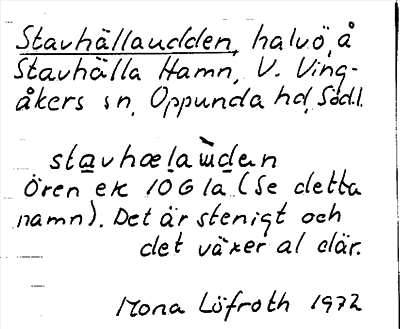 Stavhällaudden, halvö, å
Stavhälla Hamn, V. Ving-
åkers sn, Oppunda hd, Södl.
stavhœlaɯ̀den
Ören ek 10 G 1a (Se detta
namn). Det är stenigt och
det växer al där.
Mona Löfroth 1972